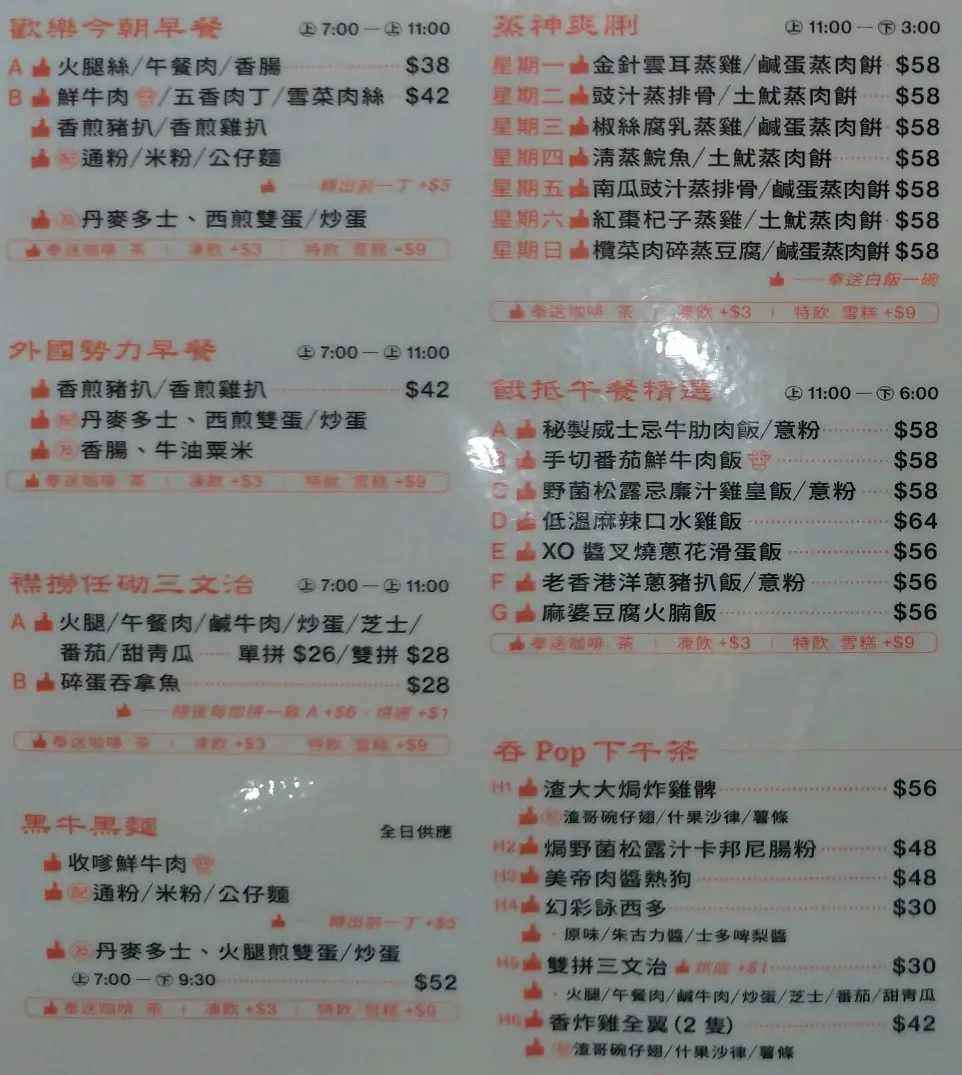 歡樂今朝早餐 上 7:00 — 上 11:00
A 火腿絲/午餐肉/香腸 $38
B 鮮牛肉/五香肉丁/雪菜肉絲 $42
香煎豬扒/香煎雞扒
配 通粉/米粉/公仔麵
轉出前一丁 +$5
及 丹麥多士、西煎雙蛋/炒蛋
奉送咖啡 茶 | 凍飲 +$3 | 特飲 雪糕 +$9
外國勢力早餐 上 7:00 — 上 11:00
香煎豬扒/香煎雞扒 $42
配 丹麥多士、西煎雙蛋/炒蛋
及 香腸、牛油粟米
奉送咖啡 茶 | 凍飲 +$3 | 特飲 雪糕 +$9
襟撈任砌三文治 上 7:00 — 上 11:00
A 火腿/午餐肉/鹹牛肉/炒蛋/芝士/
番茄/甜青瓜 單拼 $26/雙拼 $28
B 碎蛋吞拿魚 $28
隨後每加拼一款 A +$6 · 烘底 +$1
奉送咖啡 茶 | 凍飲 +$3 | 特飲 雪糕 +$9
黑牛黑麵 全日供應
收嗲鮮牛肉
配 通粉/米粉/公仔麵
轉出前一丁 +$5
及 丹麥多士、火腿煎雙蛋/炒蛋
上 7:00 — 下 9:30 $52
奉送咖啡 茶 | 凍飲 +$3 | 特飲 雪糕 +$9
蒸神爽脷 上 11:00 — 下 3:00
星期一 金針雲耳蒸雞/鹹蛋蒸肉餅 $58
星期二 豉汁蒸排骨/土魷蒸肉餅 $58
星期三 椒絲腐乳蒸雞/鹹蛋蒸肉餅 $58
星期四 清蒸鯇魚/土魷蒸肉餅 $58
星期五 南瓜豉汁蒸排骨/鹹蛋蒸肉餅 $58
星期六 紅棗杞子蒸雞/土魷蒸肉餅 $58
星期日 欖菜肉碎蒸豆腐/鹹蛋蒸肉餅 $58
奉送白飯一碗
奉送咖啡 茶 | 凍飲 +$3 | 特飲 雪糕 +$9
餓抵午餐精選 上 11:00 — 下 6:00
A 秘製威士忌牛肋肉飯/意粉 $58
B 手切番茄鮮牛肉飯 $58
C 野菌松露忌廉汁雞皇飯/意粉 $58
D 低溫麻辣口水雞飯 $64
E XO 醬叉燒蔥花滑蛋飯 $56
F 老香港洋蔥豬扒飯/意粉 $56
G 麻婆豆腐火腩飯 $56
奉送咖啡 茶 | 凍飲 +$3 | 特飲 雪糕 +$9
吞 Pop 下午茶
H1 渣大大焗炸雞髀 $56
配 渣哥碗仔翅/什果沙律/薯條
H2 焗野菌松露汁卡邦尼腸粉 $48
H3 美帝肉醬熱狗 $48
H4 幻彩詠西多 $30
· 原味/朱古力醬/士多啤梨醬
H5 雙拼三文治 烘底 +$1 $30
· 火腿/午餐肉/鹹牛肉/炒蛋/芝士/番茄/甜青瓜
H6 香炸雞全翼 (2 隻) $42
配 渣哥碗仔翅/什果沙律/薯條